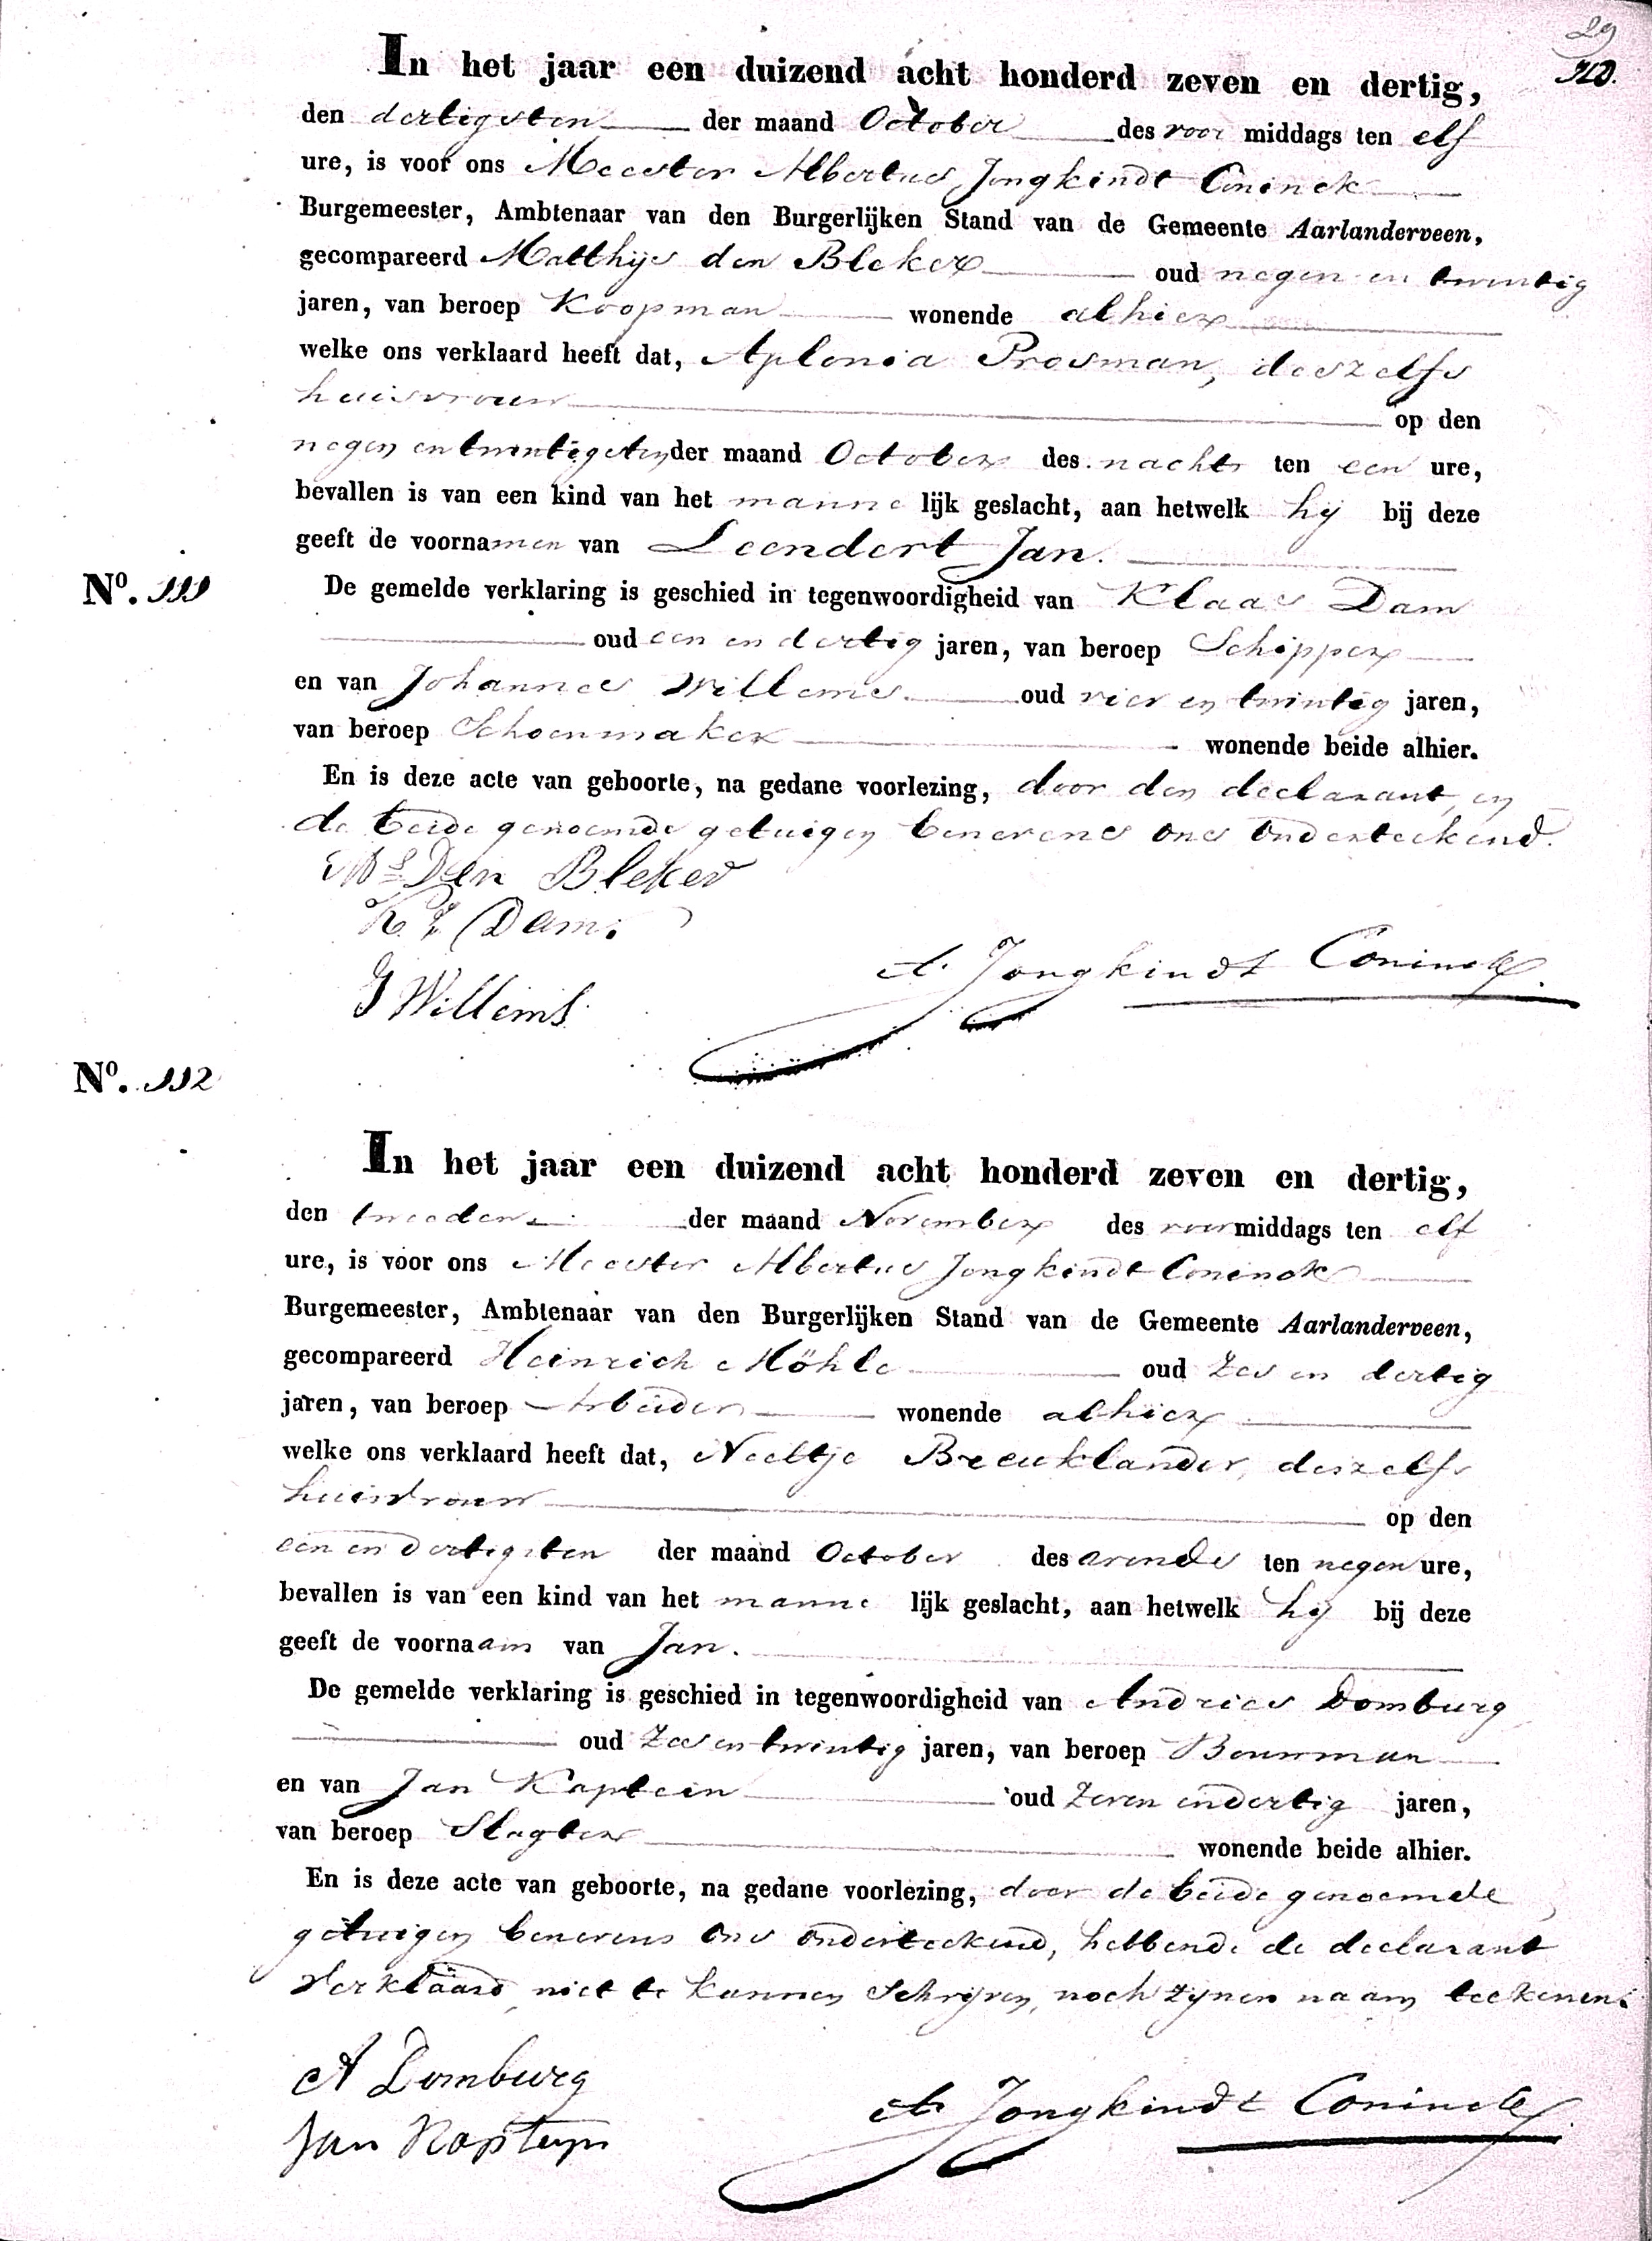 29
In het jaar een duizend acht honderd zeven en dertig,
den dertigsten der maand October des voor middags ten elf
ure, is voor ons Meester Albertus Jongkindt Coninck
Burgemeester, Ambtenaar van den Burgerlijken Stand van de Gemeente Aarlanderveen,
gecompareerd Matthijs den Bleker oud negen en twintig
jaren, van beroep Koopman wonende alhier
welke ons verklaard heeft dat, Aplonia Prosman, deszelfs
huisvrouw op den
negen en twintigsten der maand October des nachts ten een ure,
bevallen is van een kind van het manne lijk geslacht, aan hetwelk hij bij deze
geeft de voornamen van Leendert Jan.
No. 111
De gemelde verklaring is geschied in tegenwoordigheid van Klaas Dam
oud een en dertig jaren, van beroep Schipper
en van Johannes Willems oud vier en twintig jaren,
van beroep Schoenmaker wonende beide alhier.
En is deze acte van geboorte, na gedane voorlezing, door den declarant, en
de beide genoemde getuigen benevens ons onderteekend.
Ms Den Bleker
K. Dam.
J Willems
A. Jongkindt Coninck.
No. 112
In het jaar een duizend acht honderd zeven en dertig,
den tweeden der maand November des voormiddags ten elf
ure, is voor ons Meester Albertus Jongkindt Coninck
Burgemeester, Ambtenaar van den Burgerlijken Stand van de Gemeente Aarlanderveen,
gecompareerd Heinrich Möhle oud Zes en dertig
jaren, van beroep Arbeider wonende alhier
welke ons verklaard heeft dat, Neeltje Breeuklander, deszelfs
huisvrouw op den
een en dertigsten der maand October des avonds ten negen ure,
bevallen is van een kind van het manne lijk geslacht, aan hetwelk hij bij deze
geeft de voornaam van Jan.
De gemelde verklaring is geschied in tegenwoordigheid van Andries Domburg
oud Zes en twintig jaren, van beroep Bouwman
en van Jan Kaptein oud Zeven en dertig jaren,
van beroep Slagter wonende beide alhier.
En is deze acte van geboorte, na gedane voorlezing, door de beide genoemde
getuigen benevens ons onderteekend, hebbende de declarant
verklaard niet te kunnen Schrijven, noch zijnen naam teekenen.
A Domburg
Jan Kapteyn
A. Jongkindt Coninck.